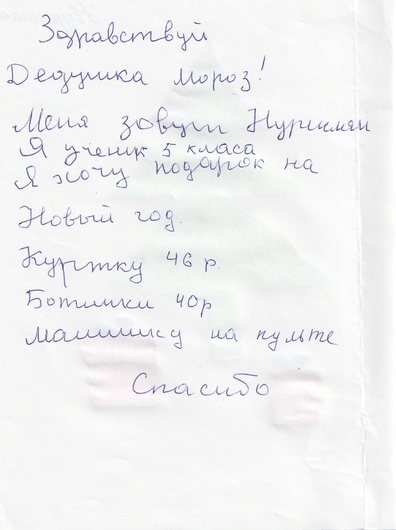 Здравствуй
Дедушка мороз!
Меня зовут Нурислям
Я ученик 5 класа
Я хочу подарок на
Новый год.
Куртку 46 р.
Ботинки 40р
машинку на пульте
Спасибо